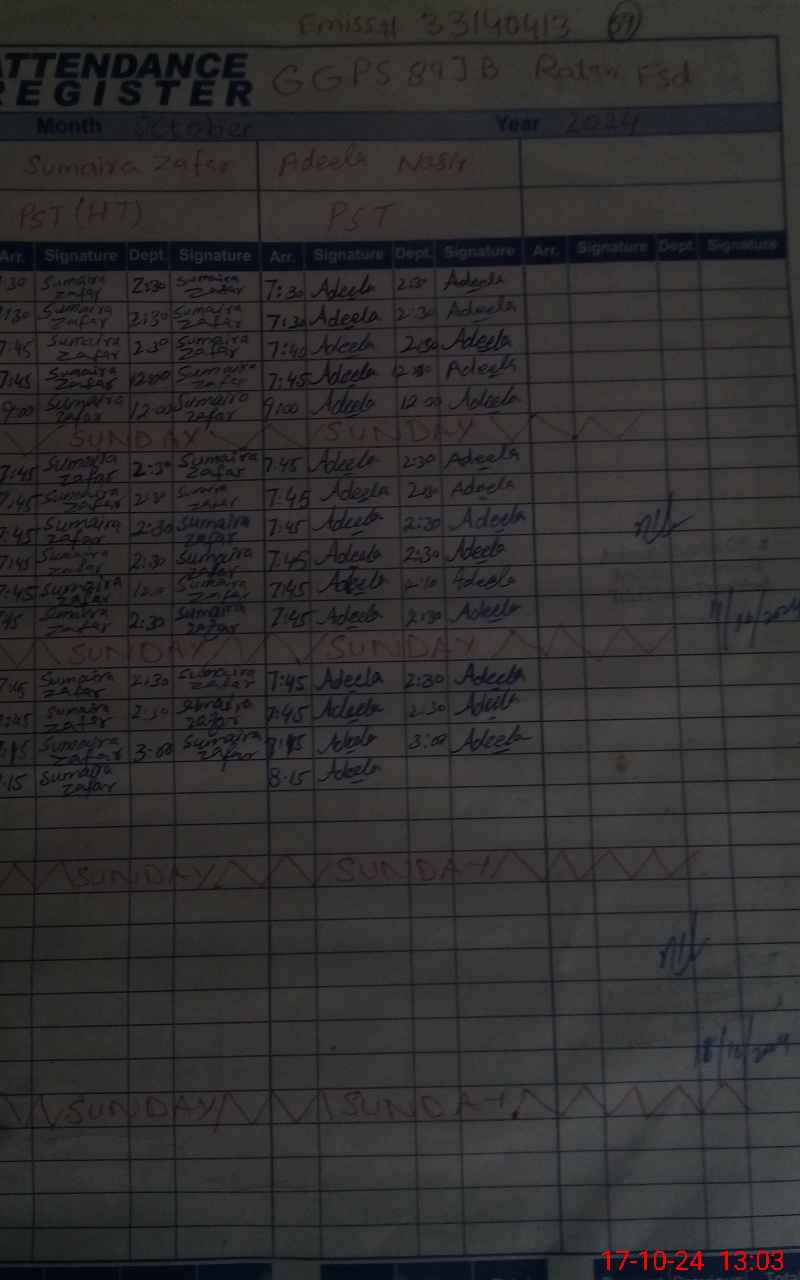 Emiss# 33140413 (59)
ATTENDANCE
REGISTER GGPS 89JB Ratan Fsd
Month October Year 2024
Sumaira Zafar Adeela Nasir
PST (HT) PST
Arr. Signature Dept. Signature Arr. Signature Dept. Signature Arr. Signature Dept. Signature
:30 Sumaira Zafar 2:30 Sumaira Zafar 7:30 Adeela 2:30 Adeela
:30 Sumaira Zafar 2:30 Sumaira Zafar 7:30 Adeela 2:30 Adeela
7:45 Sumaira Zafar 2:30 Sumaira Zafar 7:40 Adeela 2:30 Adeela
7:45 Sumaira Zafar 12:00 Sumaira Zafar 7:45 Adeela Adeela
9:00 Sumaira Zafar 12:00 Sumaira Zafar 9:00 Adeela 12:00 Adeela
SUNDAY SUNDAY
7:45 Sumaira Zafar 2:30 Sumaira Zafar 7:45 Adeela 2:30 Adeela
7:45 Sumaira Zafar 2:30 Sumaira Zafar 7:45 Adeela 2:30 Adeela
7:45 Sumaira Zafar 2:30 Sumaira Zafar 7:45 Adeela 2:30 Adeela
7:45 Sumaira Zafar 2:30 Sumaira Zafar 7:45 Adeela 2:30 Adeela
7:45 Sumaira Zafar Sumaira Zafar 7:45 Adeela Adeela
:45 Sumaira Zafar 2:30 Sumaira Zafar 7:45 Adeela 2:30 Adeela
SUNDAY SUNDAY
7:45 Sumaira Zafar 2:30 Sumaira Zafar 7:45 Adeela 2:30 Adeela
:45 Sumaira Zafar 2:30 Sumaira Zafar 7:45 Adeela 2:30 Adeela
Sumaira Zafar 3:00 Sumaira Zafar Adeela 3:00 Adeela
:15 Sumaira Zafar 8:15 Adeela
SUNDAY SUNDAY
SUNDAY SUNDAY
17-10-24 13:03